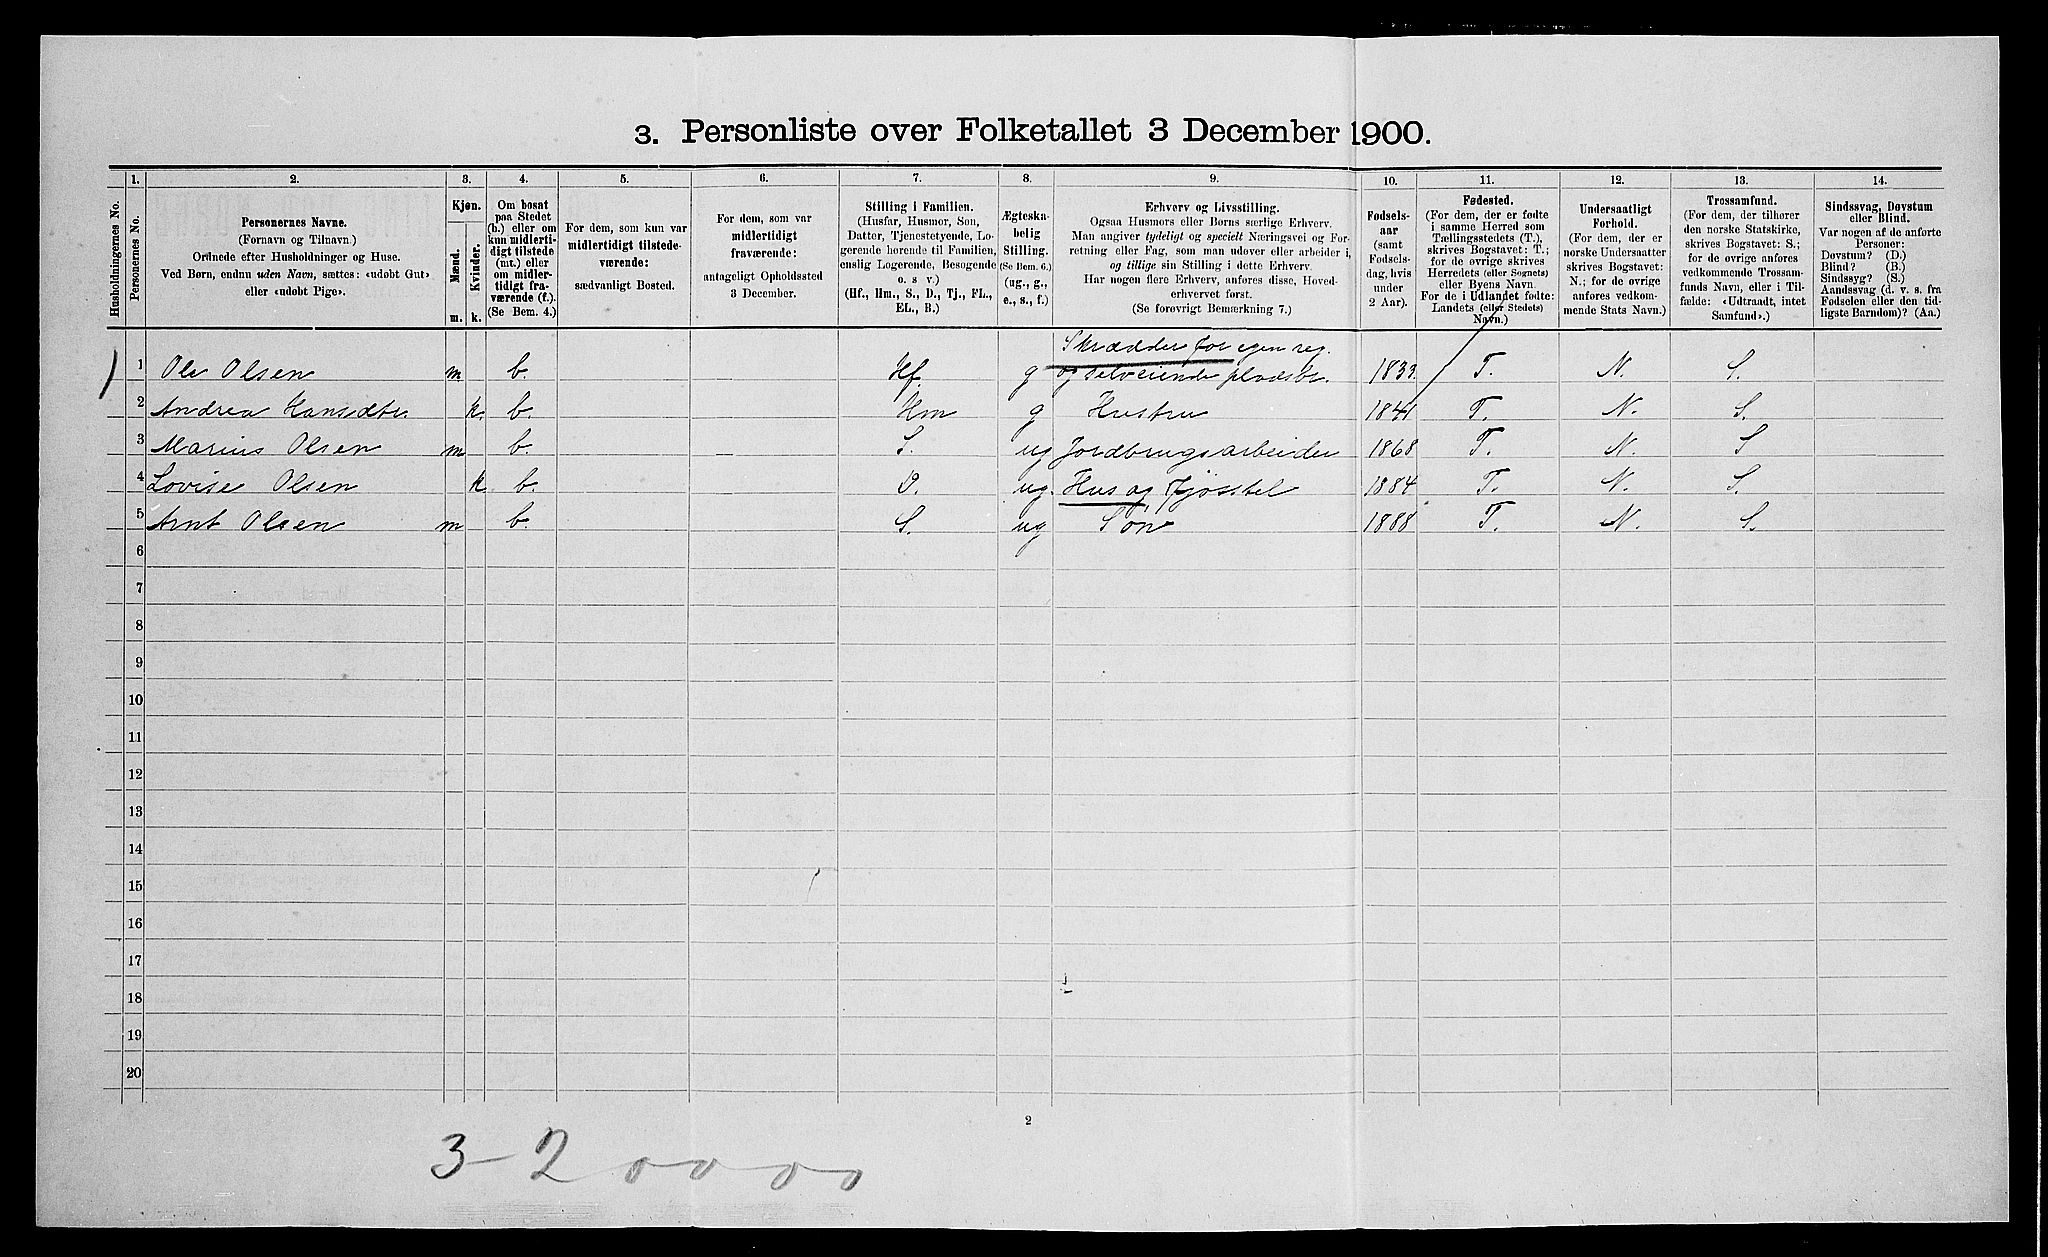 3. Personliste over Folketallet 3 December 1900.
Husholdningernes No.
1.
Personernes No.
2.
Personernes Navne.
(Fornavn og Tilnavn.)
Ordnede efter Husholdninger og Huse.
Ved Børn, endnu uden Navn, sættes: «udøbt Gut»
eller «udøbt Pige».
3.
Kjøn.
Mænd.
Kvinder.
m.
k.
4.
Om bosat
paa Stedet
(b.) eller om
kun midlerti-
digt tilstede
(mt.) eller
om midler-
tidigt fra-
værende (f.).
(Se Bem. 4.)
5.
For dem, som kun var
midlertidigt tilstede-
værende:
sædvanligt Bosted.
6.
For dem, som var
midlertidigt
fraværende:
antageligt Opholdssted
3 December.
7.
Stilling i Familien.
(Husfar, Husmor, Søn,
Datter, Tjenestetyende, Lo-
gerende hørende til Familien,
enslig Logerende, Besøgende
o. s v.)
(Hf., Hm., S., D., Tj., FL.,
EL., B.)
8.
Ægteska-
belig
Stilling.
(Se Bem. 6.)
(ug., g.,
e., s., f.)
9.
Erhverv og Livsstilling.
Ogsaa Husmors eller Børns særlige Erhverv.
Man angiver tydeligt og specielt Næringsvei og For-
retning eller Fag, som man udøver eller arbeider i,
og tillige sin Stilling i dette Erhverv.
Har nogen flere Erhverv, anføres disse, Hoved-
erhvervet først.
(Se forøvrigt Bemærkning 7.)
10.
Fødsels-
aar
(samt
Fødsels-
dag, hvis
under
2 Aar).
11.
Fødested.
(For dem, der er fødte
i samme Herred som
Tællingsstedets (T.),
skrives Bogstavet: T.;
for de øvrige skrives
Herredets (eller Sognets)
eller Byens Navn.
For de i Udlandet fødte:
Landets (eller Stedets)
Navn.)
12.
Undersaatligt
Forhold.
(For dem, der er
norske Undersaatter
skrives Bogstavet:
N.; for de øvrige
anføres vedkom-
mende Stats Navn.)
13.
Trossamfund.
(For dem, der tilhører
den norske Statskirke,
skrives Bogstavet: S.;
for de øvrige anføres
vedkommende Trossam-
funds Navn, eller i Til-
fælde: «Udtraadt, intet
Samfund».)
14.
Sindssvag, Døvstum
eller Blind.
Var nogen af de anførte
Personer:
Døvstum? (D.)
Blind? (B.)
Sindssyg? (S.)
Aandssvag (d. v. s. fra
Fødselen eller den tid-
ligste Barndom)? (Aa.)
Skrædder for egen reg.
1 Ole Olsen m b. Hf. g og selveiende pladsbr. 1833 T. N. S.
2 Andrea Hansdtr k. b. Hm g Hustru 1841 T. N. S.
3 Marius Olsen m b. S. ug Jordbrugsarbeider 1868 T. N. S
4 Lovise Olsen k b. D. ug. Hus og Fjøsstel 1884 T. N. S.
5 Arnt Olsen m b. S. ug Søn 1888 T. N. S.
6
7
8
9
10
11
12
13
14
15
16
17
18
19
20
2
3-2 0 0 0 0